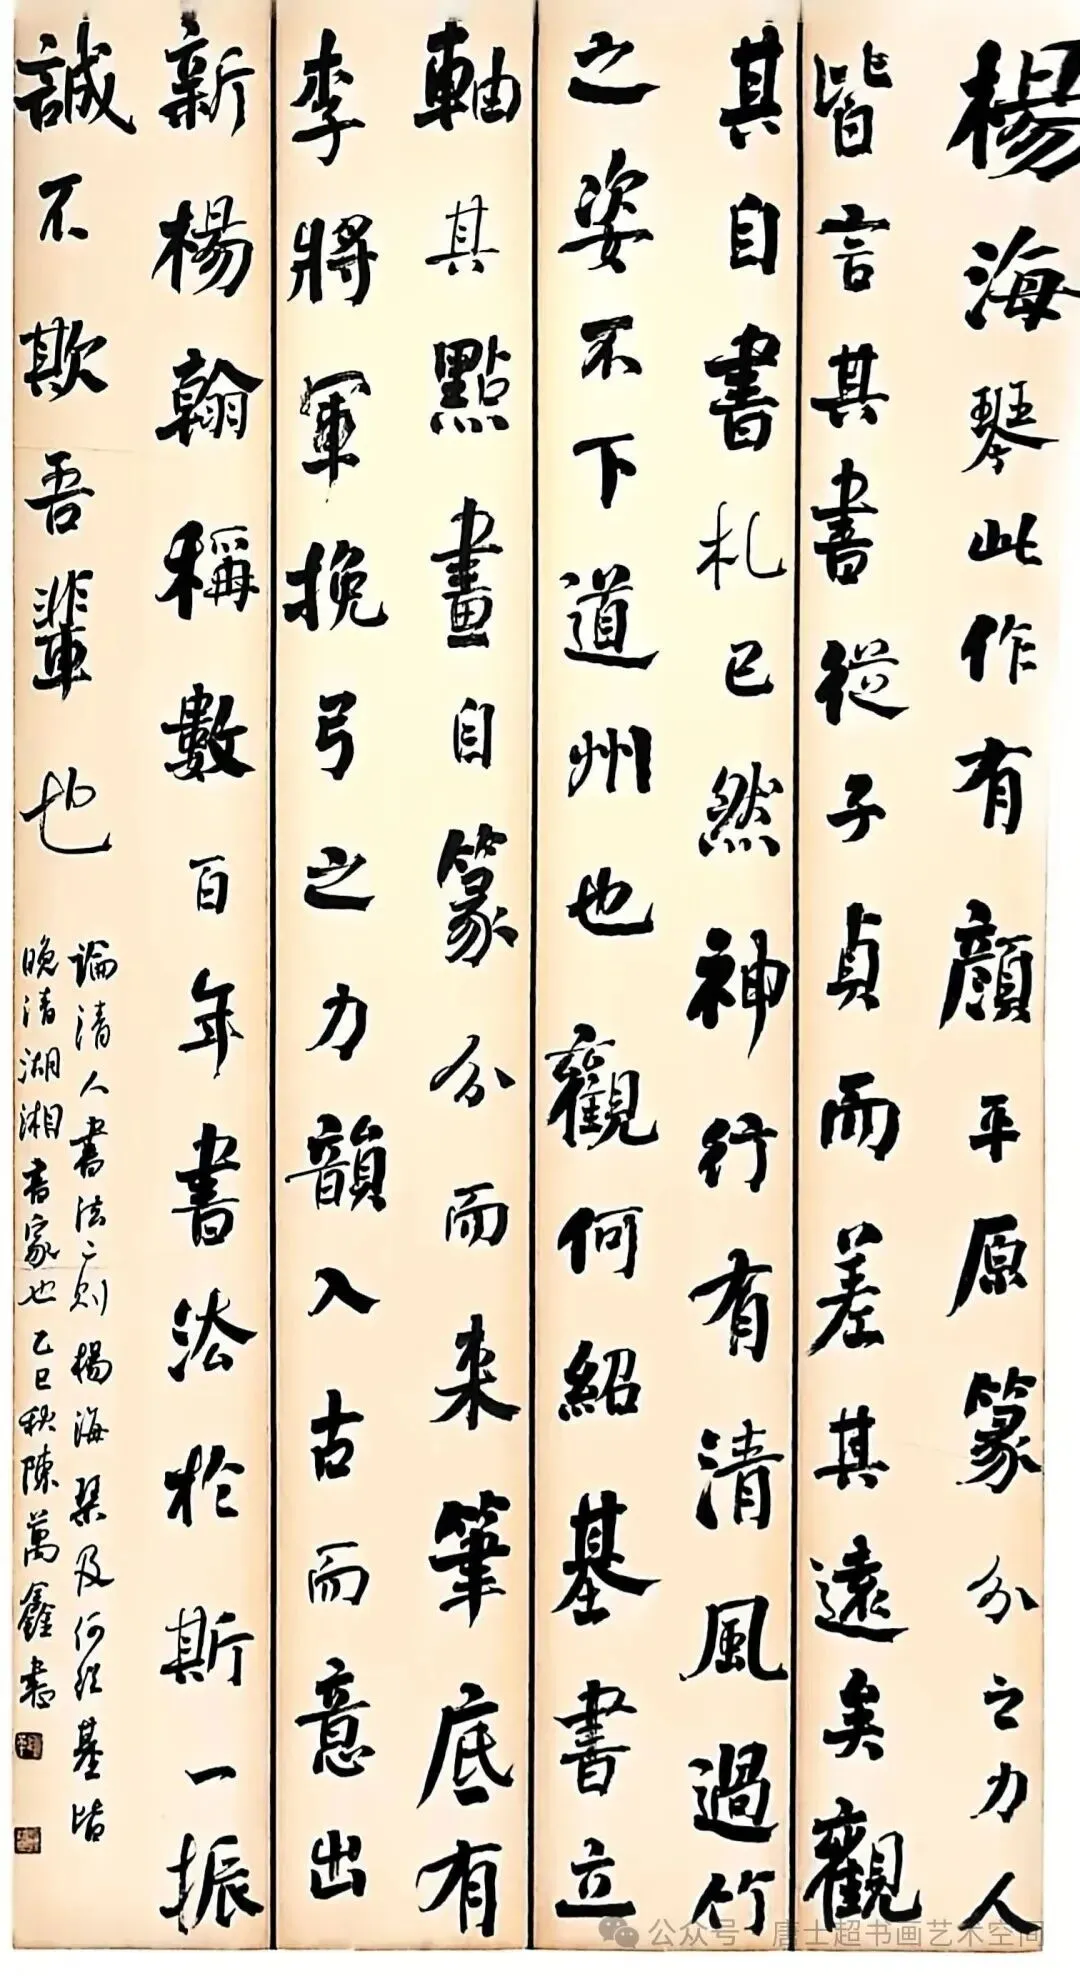 楊海琴此作有顏平原篆分之力人
皆言其書從子貞而差其遠矣觀
其自書札已然神行有清風過竹
之姿不下道州也觀何紹基書立
軸其點畫自篆分而来筆底有
李將軍挽弓之力韻入古而意出
新楊翰稱數百年書法於斯一振
誠不欺吾輩也
論清人書法二則楊海琹及何紹基皆
晚清湖湘書家也乙巳秋陳萬鑫書
公众号·唐士超书画艺术空间